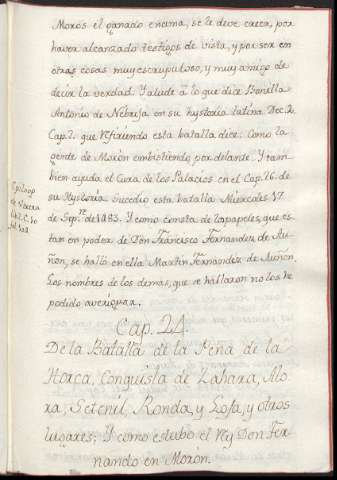 Morón el ganado encima, se le deve creer, por
haver alcanzado testigos de vista, y por ser en
otras cosas muy escrupuloso, y muy amigo de
decir la verdad. Y alude à lo que dice Bonilla
Antonio de Nebrija en su hystoria latina Dec. 2
Cap. 2. que refiriendo esta batalla dice: Como la
gente de Morón embistiendo por delante. Y tam
bien ayuda el Cura de los Palacios en el Cap. 76. de
su Hystoria. Sucedio esta batalla Miercoles 17
de Sep.re de 1483. Y como consta de los papeles, que es
tan en poder de Don Francisco Fernandez de Au
ñon, se halló en ella Martin Fernandez de Auñon.
Los nombres de los demas, que se hallaron no los he
podido averiguar.
Cap. 24.
De la Batalla de la Peña de la
Horca, Conquista de Zahara, Alo
ra, Setenil, Ronda, y Loja, y otros
lugares; Y como estubo el Rey Don Fer
nando en Morón.